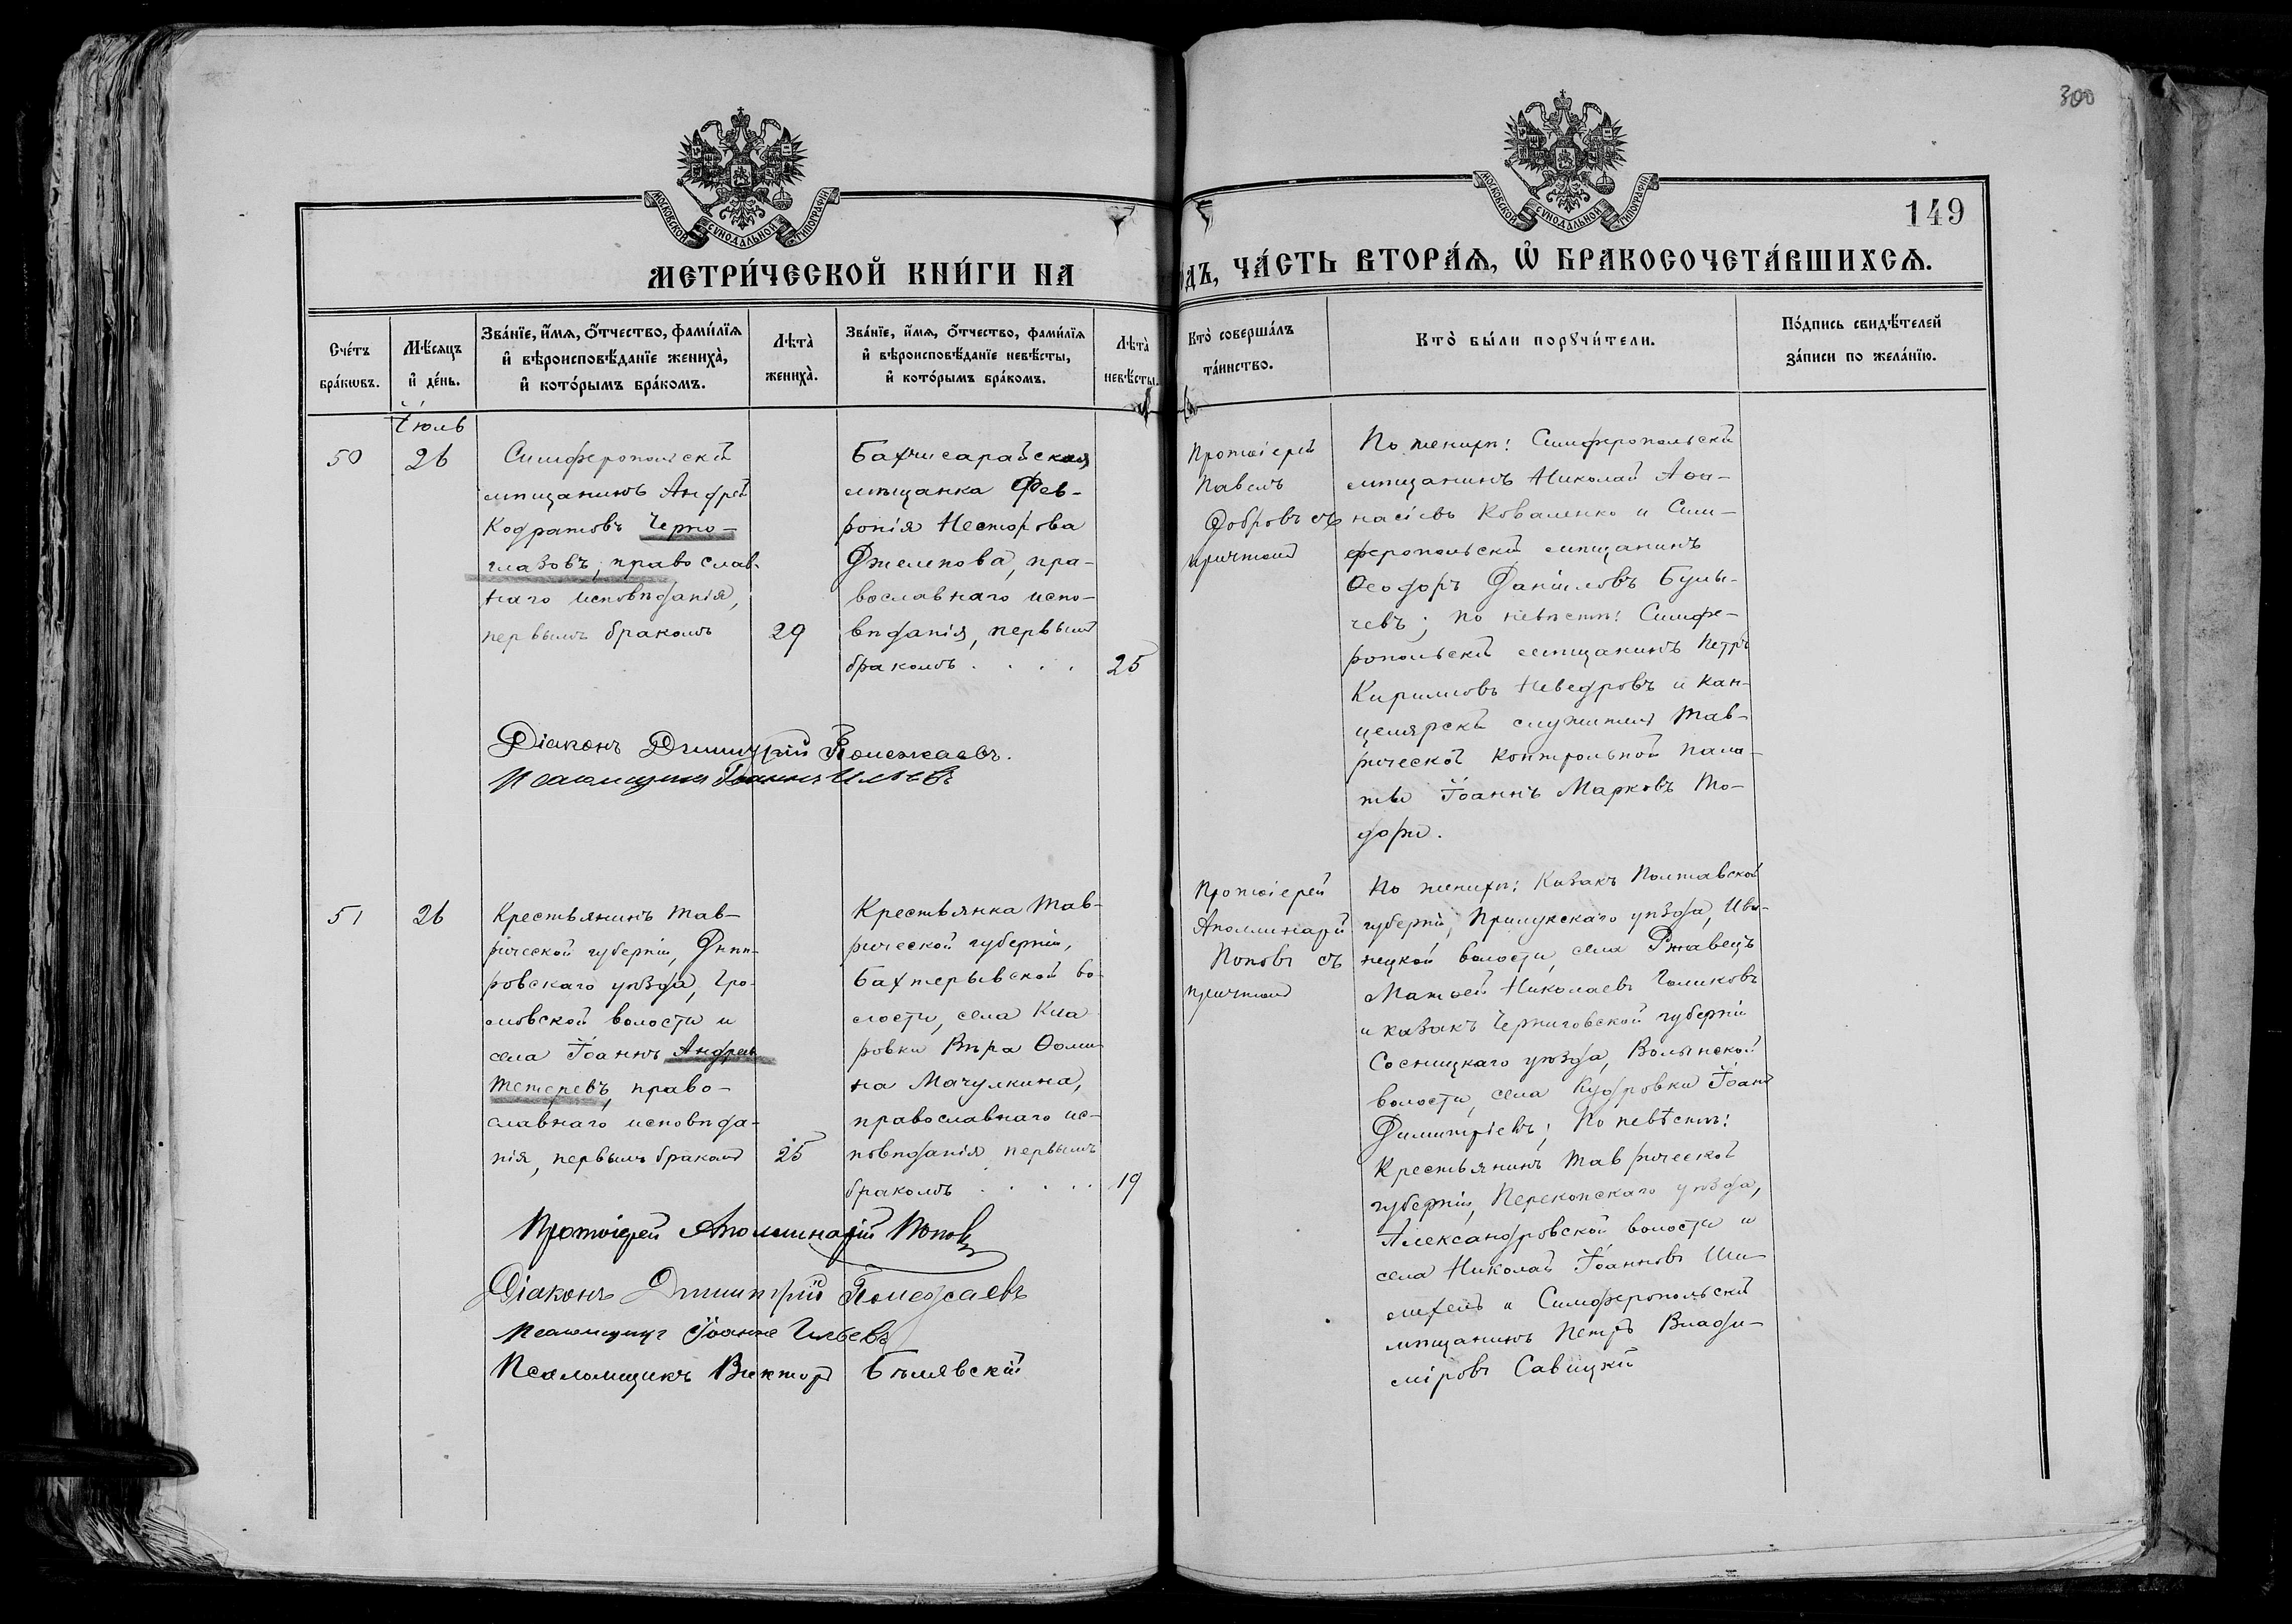 300
149
МОСКОВСКОЙ СѴНОДАЛЬНОЙ ТИПОГРАФІИ
МОСКОВСКОЙ СѴНОДАЛЬНОЙ ТИПОГРАФІИ
МЕТРИ́ЧЕСКОЙ КНИ́ГИ НА
ОДЪ, ЧА́СТЬ ВТОРА́Ѧ, Ѡ҆ БРАКОСОЧЕТА́ВШИХСѦ.
Сче́тъ
бра́кѡвъ.
Мѣ́сяцъ
и҆ де́нь.
Зва́нїе, и҆́мѧ, ѻ҆́тчество, фами́лїѧ
и҆ вѣроисповѣ́данїе жениха̀,
и҆ кото́рымъ бра́комъ.
Лѣта̀
жениха̀.
Зва́нїе, и҆́мѧ, ѻ҆́тчество, фами́лїѧ
и҆ вѣроисповѣ́данїе невѣ́сты,
и҆ кото́рымъ бра́комъ.
Лѣта̀
невѣ́сты.
Кто̀ соверша́лъ
та́инство.
Кто̀ бы́ли порꙋчи́тели.
По́дпись свидѣ́телей
за́писи по жела́нїю.
Іюль
50
26
Симферопольскій
мѣщанинъ Андрей
Кодратовъ Черно-
глазовъ, православ-
наго исповѣданія,
первымъ бракомъ
29
Бахчисарайская
мѣщанка Фев-
ронія Несторова
Джелепова, пра-
вославнаго испо-
вѣданія, первымъ
бракомъ . . . .
25
Протоіерей
Павелъ
Добровъ съ
причтомъ
По женихѣ: Симферопольскій
мѣщанинъ Николай Аѳа-
насіевъ Коваленко и Сим-
феропольскій мѣщанинъ
Ѳеодоръ Даніиловъ Булы-
чевъ; по невѣстѣ: Симфе-
ропольскій мѣщанинъ Петръ
Кирилловъ Неведровъ и кан-
целярскій служитель Тав-
рической контрольной пала-
ты Іоаннъ Марковъ То-
дори.
Діаконъ Димитрій Полежаевъ.
Псаломщикъ Іоаннъ Ильевъ
51
26
Крестьянинъ Тав-
рической губерніи, Днѣп-
ровскаго уѣзда, Гро-
мовской волости и
села Іоаннъ Андреевъ
Тетеревъ, право-
славнаго исповѣда-
нія, первымъ бракомъ
25
Крестьянка Тав-
рической губерніи,
Бахтерывской во-
лости, села Кла
ровки Вѣра Ѳоми-
на Мачулкина,
православнаго ис-
повѣданія первымъ
бракомъ . . . . .
19
Протоіерей
Аполлинарій
Поповъ съ
причтомъ
По женихѣ: Казакъ Полтавской
губерніи, Прилукскаго уѣзда, Ива-
нецкой волости, села Ржавецъ
Матѳей Николаевъ Голиковъ
и казакъ Черниговской губерніи
Сосницкаго уѣзда, Волынской
волости, села Кудровки Іоаннъ
Димитріевъ; По невѣстѣ:
Крестьянинъ Таврической
губерніи, Перекопскаго уѣзда,
Александровской волости и
села Николай Іоанновъ Ши-
михель и Симферопольскій
мѣщанинъ Петръ Влади-
міровъ Савицкій
Протоіерей Аполлинарій Поповъ
Діаконъ Димитрій Полежаевъ
Псаломщикъ Іоаннъ Ильевъ
Псаломщикъ Викторъ Бѣлявскій